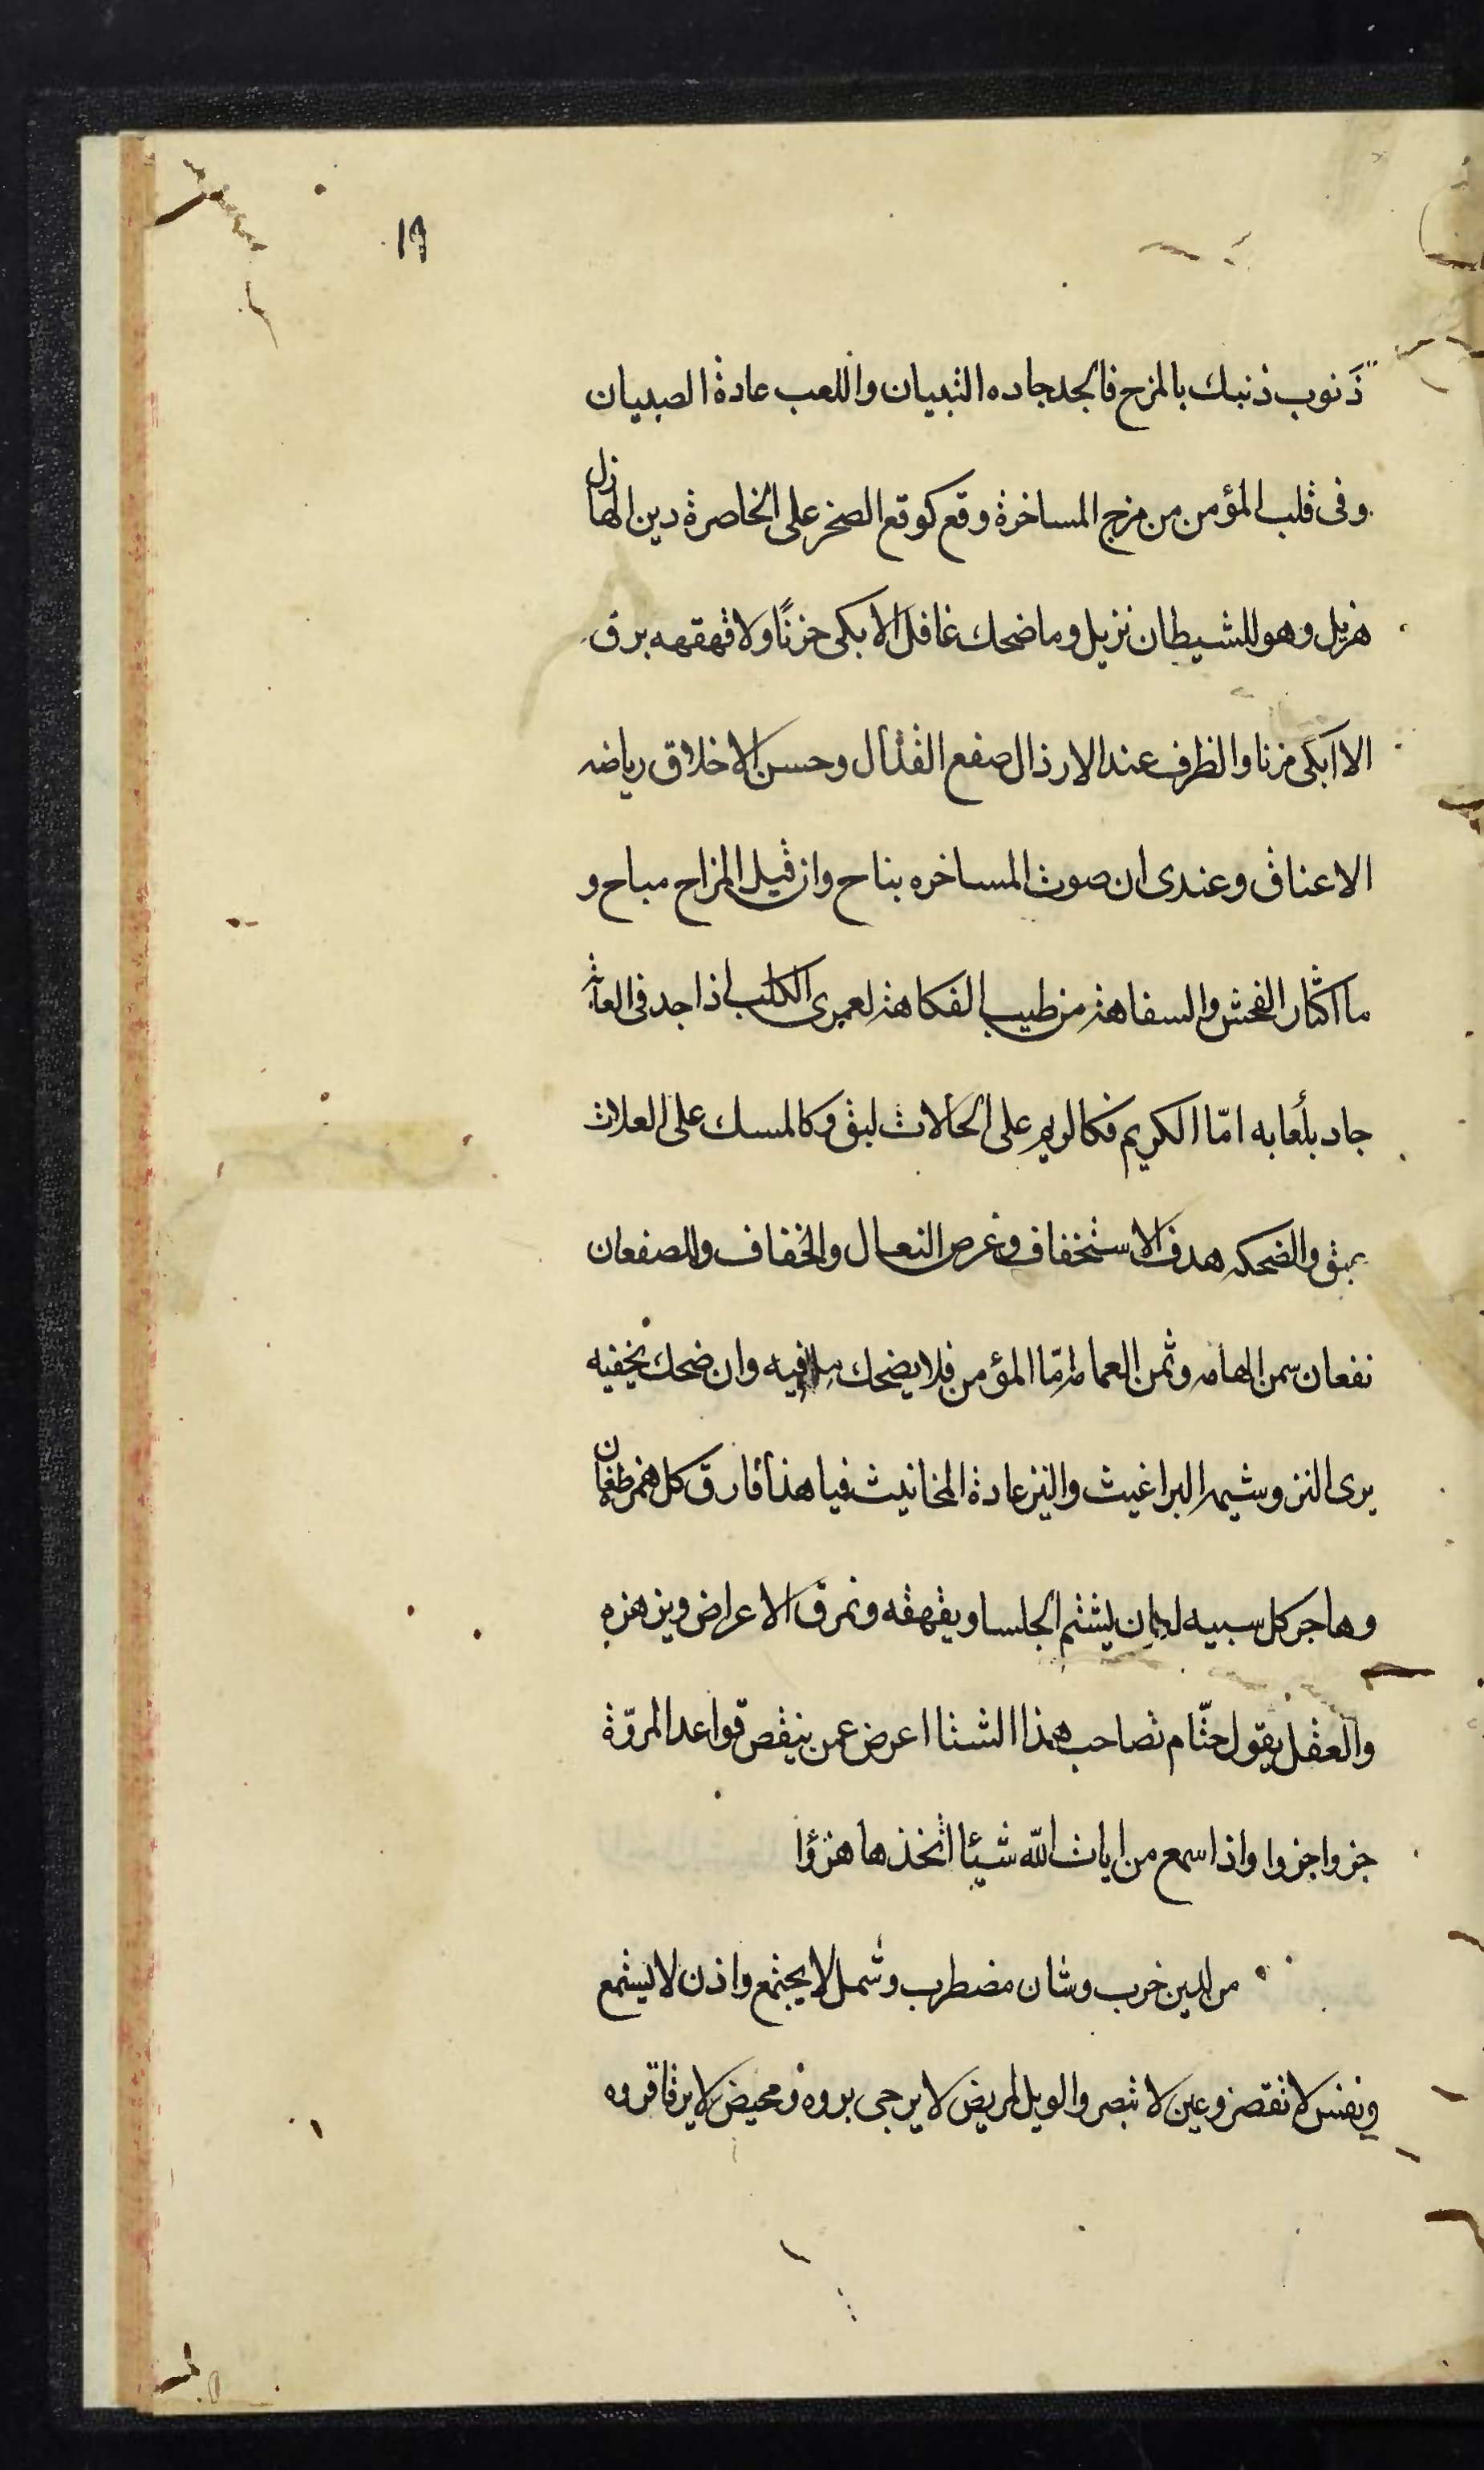 ١٩
ذَنوب ذنبك بالمزح فالجد جاده التبيان واللعب عادة الصبيان
وفى قلب المؤمن من مزح المساخرة وقع كوقع الصخر على الخاصرة دين الهازل
هزيل وهو للشيطان نزيل وما ضحك غافل الا بكى حزنًا ولا قهقهه برق
الا ابكى مزنا والظرف عند الارذال صفع القذال وحسن الاخلاق رياضه
الاعناق وعندى ان صوت المساخره بناح وان قيل المزاح مباح و
ما اكثار الفحش والسفاهة من طيب الفكاهة لعمرى الكلب اذا جد فى العابه
جاد بلُعابه امّا الكريم فكالريم على الحالات لبق وكالمسك على العلات
يبق والضحكه هدف الاستخفاف وغرض النعال والخفاف وللصفعان
نفعان سمن الهامه وثمن العمامه امّا المؤمن فلا يضحك فيه وان ضحك يخفيه
يرى النز وشيمه البراغيث والنز عادة المخانيث فيا هذا فارق كل همز طغان
وهاجر كل سبيه لعان يشتم الجلسا ويقهقه ونمرق الاعراض ويزهزه
والعقل يقول حتّام تصاحب هذا الشتا اعرض عمن ينقص قواعد المروّة
جزوا جزوا واذا سمع من ايات الله شيئا اتخذها هزؤا
من لدين خرب وشان مضطرب وشمل لا يجتمع واذن لا يستمع
ونفس لا تقصر وعين لا تبصر والويل لمريض لا يرجى بروه ومحيض لا يرقا قروه